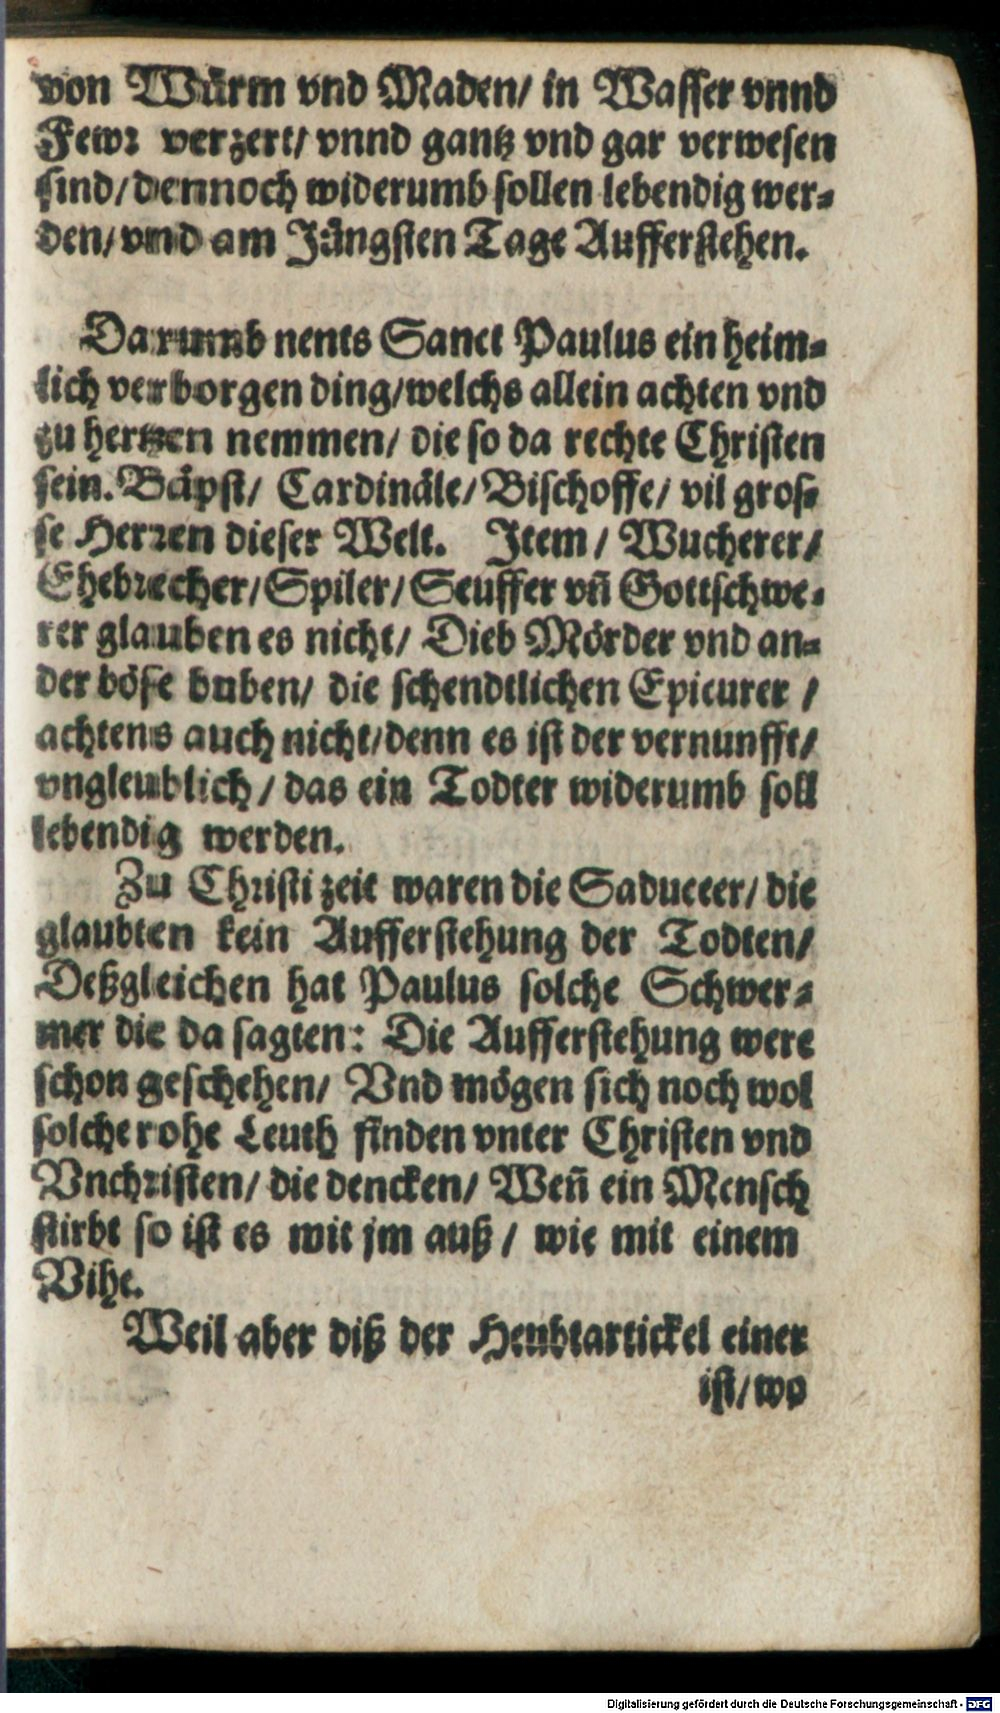 von Würm vnd Maden/ in Wasser vnnd
Fewr verzert/ vnnd gantz vnd gar verwesen
sind/ dennoch widerumb sollen lebendig wer-
den/ vnd am Jüngsten Tage Aufferstehen.
Darumb nents Sanct Paulus ein heim-
lich verborgen ding/ welchs allein achten vnd
zu hertzen nemmen/ die so da rechte Christen
sein. Bäpst/ Cardinäle/ Bischoffe/ vil gros-
se Herren dieser Welt. Item/ Wucherer/
Ehebrecher/ Spiler/ Seuffer vñ Gottschwe-
rer glauben es nicht/ Dieb Mörder vnd an-
der böse buben/ die schendtlichen Epicurer/
achtens auch nicht/ denn es ist der vernunfft/
vngleublich/ das ein Todter widerumb soll
lebendig werden.
Zu Christi zeit waren die Saduceer/ die
glaubten kein Aufferstehung der Todten/
Deßgleichen hat Paulus solche Schwer-
mer die da sagten: Die Aufferstehung were
schon geschehen/ Vnd mögen sich noch wol
solche rohe Leuth finden vnter Christen vnd
Vnchristen/ die dencken/ Weñ ein Mensch
stirbt so ist es mit jm auß/ wie mit einem
Vihe.
Weil aber diß der Heubtartickel einer
ist/ wo
Digitalisierung gefördert durch die Deutsche Forschungsgemeinschaft - DFG